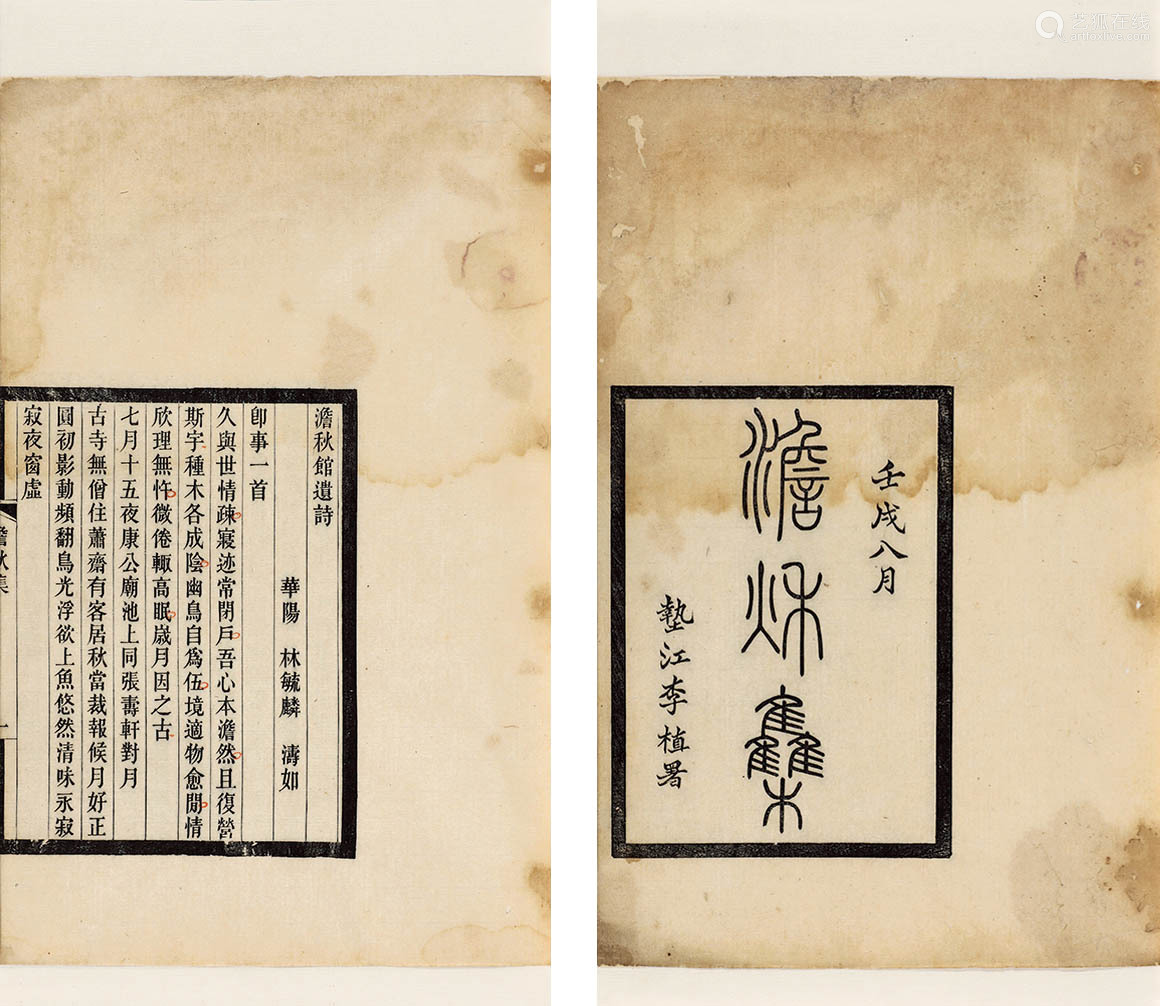 艺狐在线
yartfoxlive.com
壬戌八月
澹秌雧
墊江李植署
澹秋館遺詩
華陽 林毓麟 濤如
卽事一首
久與世情疎寂迹常閉戶吾心本澹然且復營
斯宇種木各成陰幽鳥自爲伍境適物愈閒情
欣理無忤微倦輙高眠歲月因之古
七月十五夜康公廟池上同張壽軒對月
古寺無僧住蕭齋有客居秋當裁報候月好正
圓初影動頻翻鳥光浮欲上魚悠然清味永寂
寂夜窗虛
澹秋集
一